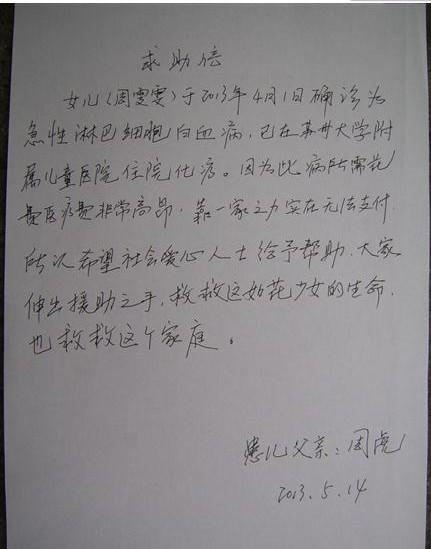 求助信
女儿（周雯雯）于2013年4月1日确诊为
急性淋巴细胞白血病，已在苏州大学附
属儿童医院住院化疗。因为此病所需花
费医疗费非常高昂，靠一家之力实在无法支付，
所以希望社会爱心人士给予帮助，大家
伸出援助之手，救救这如花少女的生命，
也救救这个家庭。
患儿父亲：周虎
2013.5.14